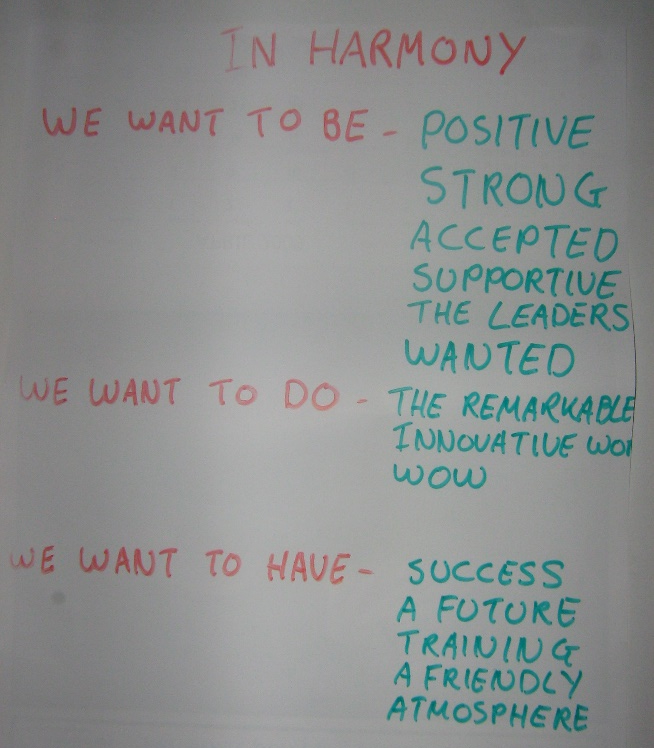 IN HARMONY
WE WANT TO BE - POSITIVE
STRONG
ACCEPTED
SUPPORTIVE
THE LEADERS
WANTED
WE WANT TO DO - THE REMARKABLE
INNOVATIVE
WOW
WE WANT TO HAVE - SUCCESS
A FUTURE
TRAINING
A FRIENDLY
ATMOSPHERE